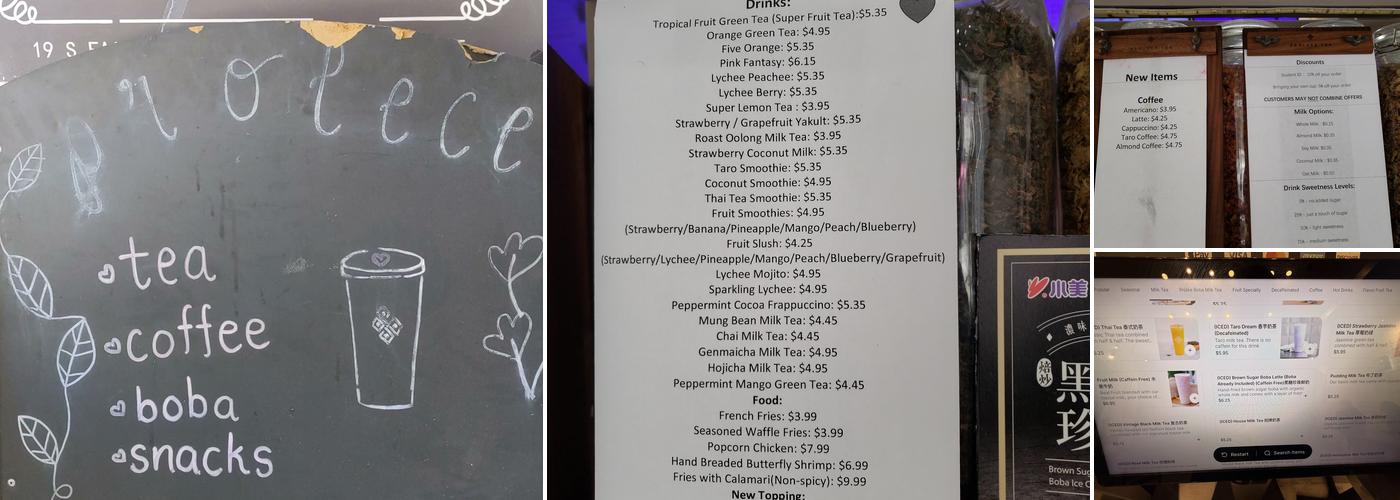 19 S
Prolece
tea
coffee
boba
snacks
Drinks:
Tropical Fruit Green Tea (Super Fruit Tea):$5.35
Orange Green Tea: $4.95
Five Orange: $5.35
Pink Fantasy: $6.15
Lychee Peachee: $5.35
Lychee Berry: $5.35
Super Lemon Tea : $3.95
Strawberry / Grapefruit Yakult: $5.35
Roast Oolong Milk Tea: $3.95
Strawberry Coconut Milk: $5.35
Taro Smoothie: $5.35
Coconut Smoothie: $4.95
Thai Tea Smoothie: $5.35
Fruit Smoothies: $4.95
(Strawberry/Banana/Pineapple/Mango/Peach/Blueberry)
Fruit Slush: $4.25
(Strawberry/Lychee/Pineapple/Mango/Peach/Blueberry/Grapefruit)
Lychee Mojito: $4.95
Sparkling Lychee: $4.95
Peppermint Cocoa Frappuccino: $5.35
Mung Bean Milk Tea: $4.45
Chai Milk Tea: $4.45
Genmaicha Milk Tea: $4.95
Hojicha Milk Tea: $4.95
Peppermint Mango Green Tea: $4.45
Food:
French Fries: $3.99
Seasoned Waffle Fries: $3.99
Popcorn Chicken: $7.99
Hand Breaded Butterfly Shrimp: $6.99
Fries with Calamari(Non-spicy): $9.99
New Topping:
小美
濃
焙炒
黑
珍
Brown Sug
Boba Ice C
New Items
Coffee
Americano: $3.95
Latte: $4.25
Cappuccino: $4.25
Taro Coffee: $4.75
Almond Coffee: $4.75
Discounts
Student ID : 10% off your order
Bringing your own cup: 5% off your order
CUSTOMERS MAY NOT COMBINE OFFERS
Milk Options:
Whole Milk : $0.25
Almond Milk : $0.35
Soy Milk: $0.35
Coconut Milk : $0.35
Oat Milk : $0.50
Drink Sweetness Levels:
0% - no added sugar
25% - just a touch of sugar
50% - light sweetness
75% - medium sweetness
Pay VISA
Popular Seasonal Milk Tea Brown Boba Milk Tea Fruit Specialty Decaffeinated Coffee Hot Drinks Flavor Fruit Tea
(ICED) Thai Tea 泰式奶茶
(ICED) Taro Dream 香芋奶茶 (Decaffeinated)
Taro milk tea. There is no caffeine for this drink
$5.95
(ICED) Strawberry Jasmine Milk Tea
$5.95
Fruit Milk Tea (Caffein Free)
(ICED) Brown Sugar Boba Latte (Boba Already Included) (Caffein Free)
Hand-fried brown sugar boba with organic whole milk and comes with a layer of
$6.25
Pudding Milk Tea 布丁奶茶
(ICED) Vintage Black Milk Tea
(ICED) House Milk Tea 招牌奶茶
$5.25
Restart
Search Items